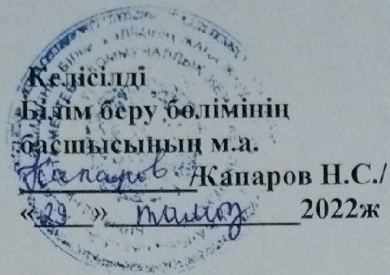 Келісілді
Білім беру бөлімінің
басшысының м.а.
Жапаров /Жапаров Н.С./
«29» тамыз 2022ж